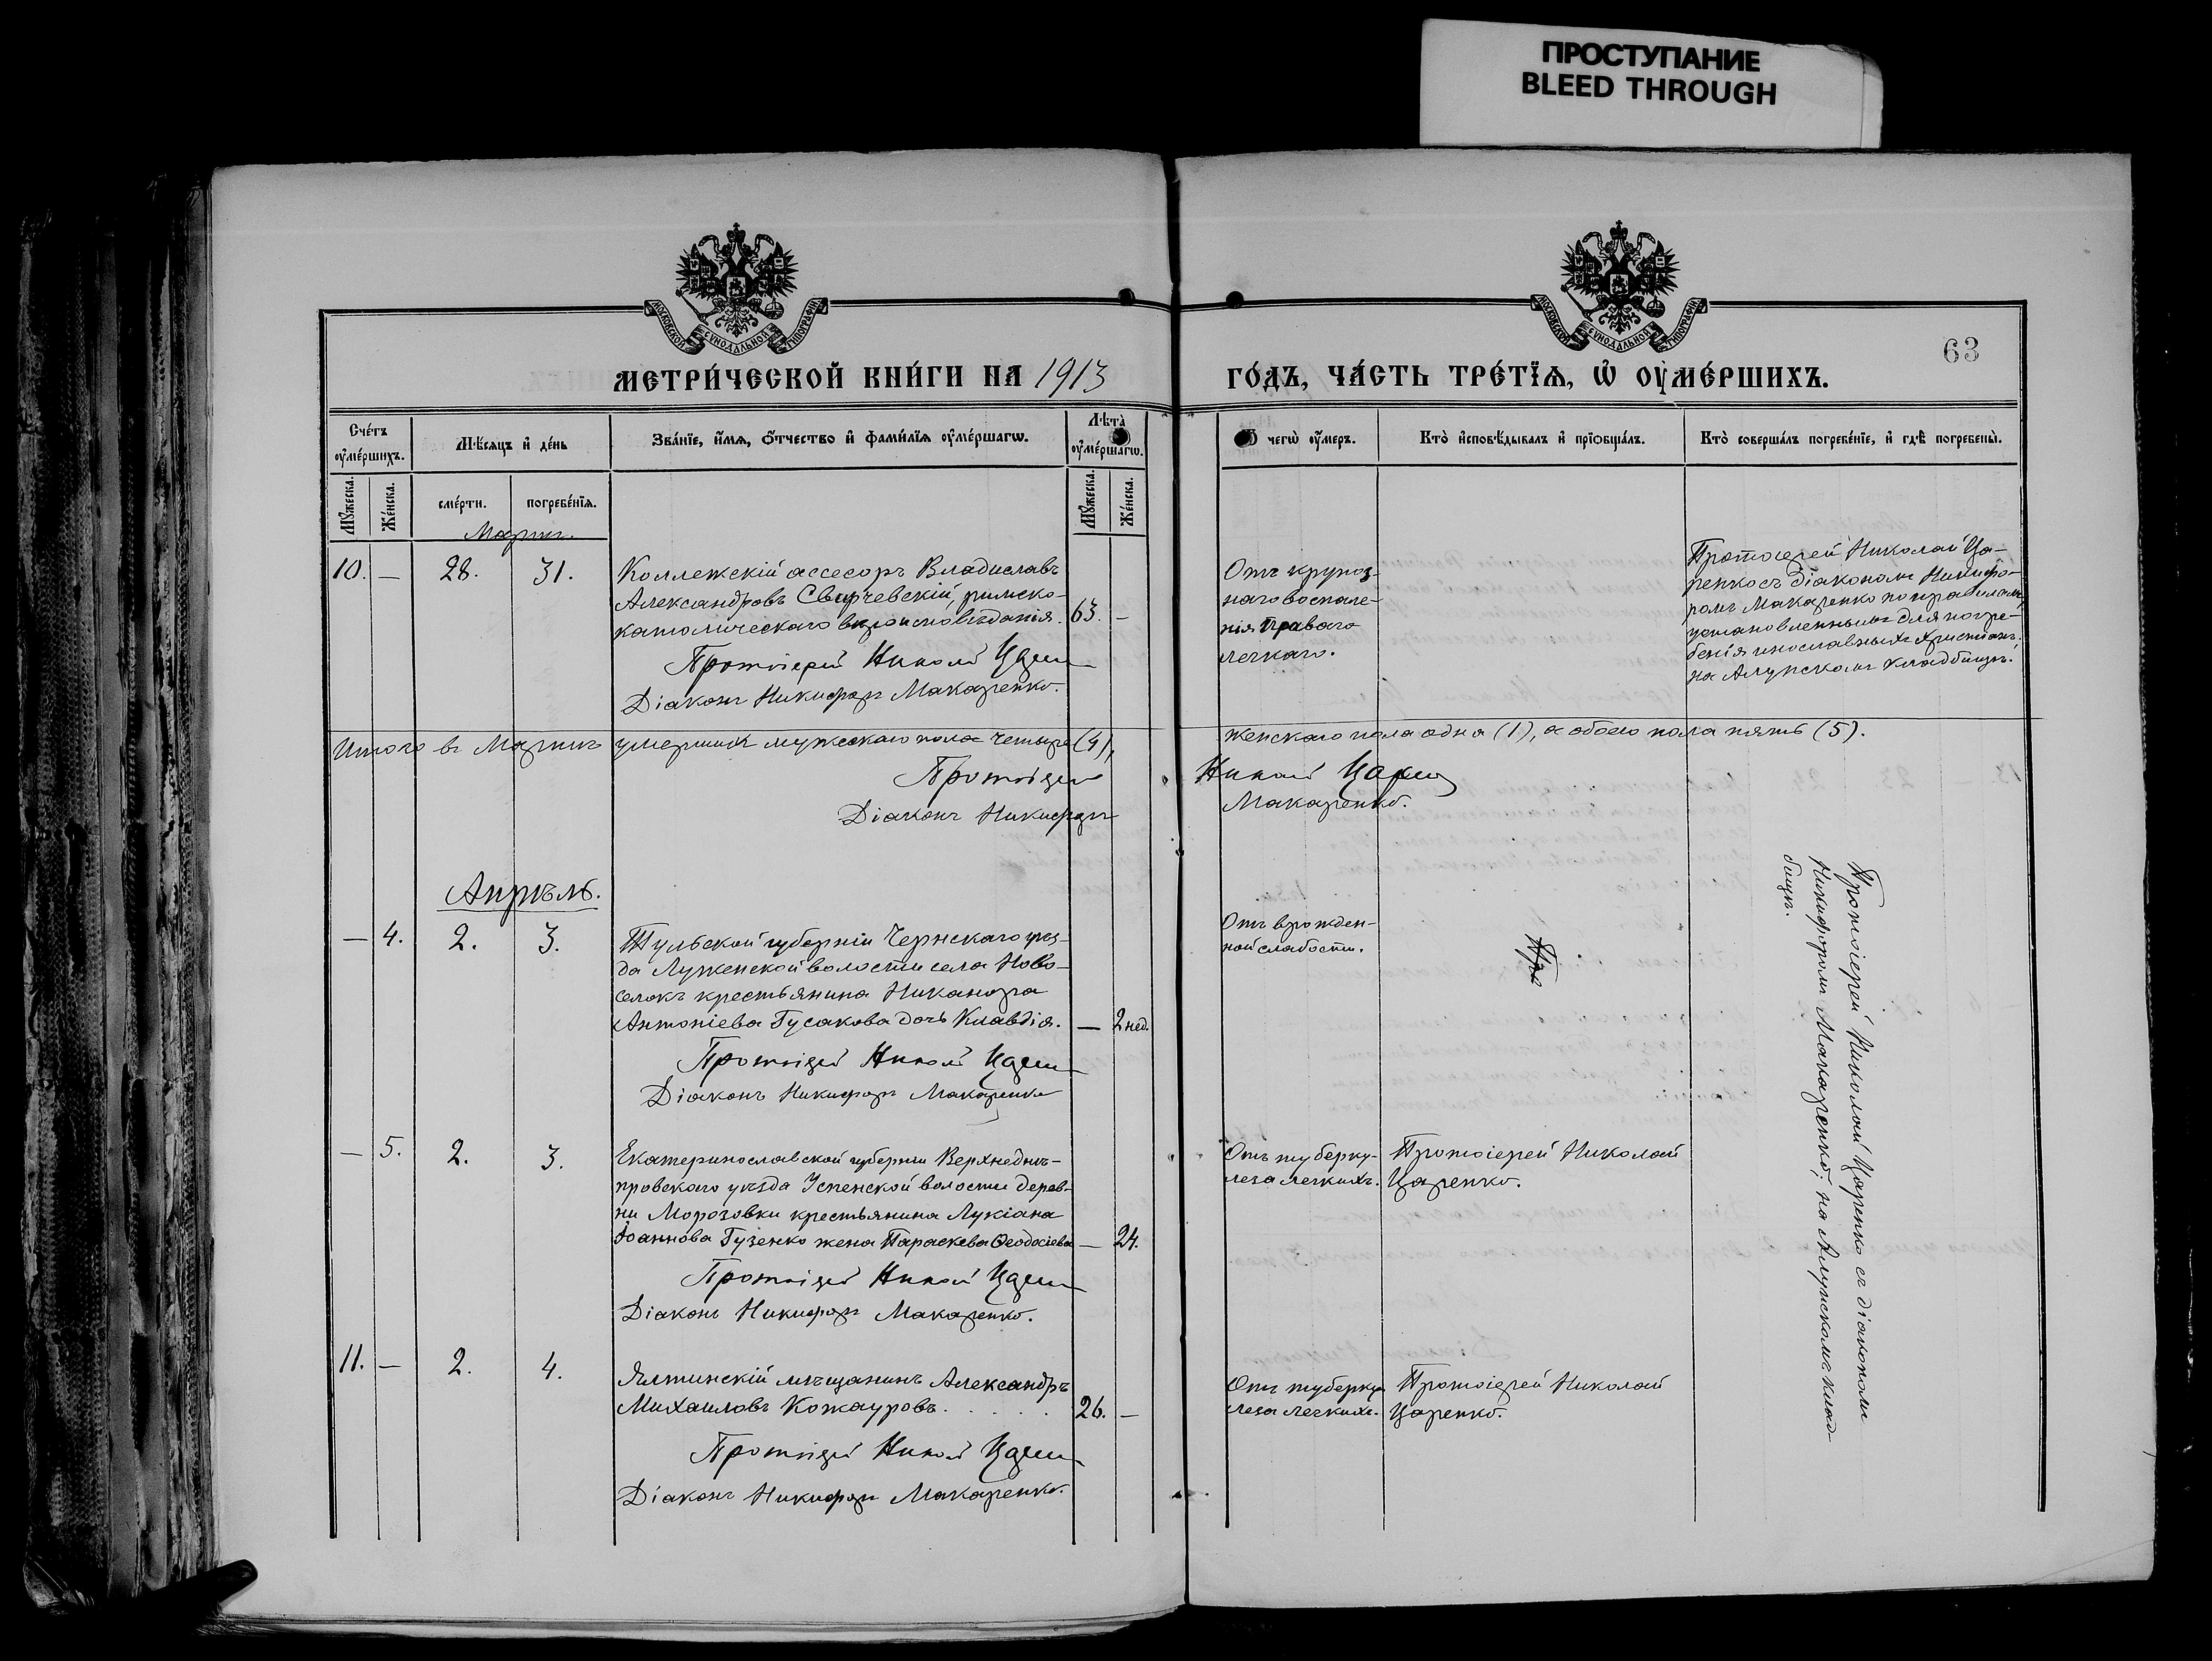 ПРОСТУПАНИЕ
BLEED THROUGH
МОСКОВСКОЙ СУНОДАЛЬНОЙ ТИПОГРАФІИ
МОСКОВСКОЙ СУНОДАЛЬНОЙ ТИПОГРАФІИ
63
МЕТРИ́ЧЕСКОЙ КНИ́ГИ НА 1913
ГО́ДЪ, ЧА́СТЬ ТРЕ́ТЇѦ, Ѡ҆ ОУ҆МЕ́РШИХЪ.
Сче́тъ оу҆ме́ршихъ.
Мѣ́сяцъ и҆ де́нь
Зва́нїе, и҆́мѧ, ѻ҆́тчество и҆ фами́лїѧ оу҆ме́ршагѡ.
Лѣ́та̀ оу҆ме́ршагѡ.
чегѡ̀ оу҆́меръ.
Кто̀ и҆сповѣ́дывалъ и҆ прїѡбща́лъ.
Кто̀ соверша́лъ погребе́нїе, и҆ гдѣ̀ погребены̀.
Мꙋ́жеска.
Же́нска.
сме́рти.
погребе́нїѧ.
Мꙋ́жеска.
Же́нска.
Мартъ.
10. — 28. 31.
Коллежскій ассесоръ Владиславъ
Александровъ Свирчевскій, римско-
католическаго вѣроисповѣданія. 63. —
Протоіерей Николай Царенко
Діаконъ Никифоръ Макаренко.
Отъ крупоз-
наго воспале-
нія праваго
легкаго.
Протоіерей Николай Ца-
ренко съ діакономъ Никифо-
ромъ Макаренко по правиламъ,
установленнымъ для погре-
бенія инославныхъ христіанъ.
на Алупскомъ кладбищѣ.
Итого въ Мартѣ умершихъ мужескаго пола четыре (4),
женскаго пола одна (1), а обоего пола пять (5).
Протоіерей Николай Царенко
Діаконъ Никифоръ Макаренко.
Апрѣль.
— 4. 2. 3.
Тульской губерніи Чернскаго уѣз-
да Луженской волости села Ново-
селокъ крестьянина Никанора
Антоніева Гусакова дочь Клавдія. — 2 нед.
Протоіерей Николай Царенко
Діаконъ Никифоръ Макаренко
Отъ врожден-
ной слабости.
Пре
Протоіерей Николай Царенко съ діакономъ
Никифоромъ Макаренко; на Алупскомъ клад-
бищѣ.
— 5. 2. 3.
Екатеринославской губерніи Верхнеднѣ-
провскаго уѣзда Успенской волости дерев-
ни Морозовки крестьянина Лукіана
Іоаннова Гузенко жена Параскева Ѳеодосіева — 24.
Протоіерей Николай Царенко
Діаконъ Никифоръ Макаренко.
Отъ туберку-
леза легкихъ.
Протоіерей Николай
Царенко.
11. — 2. 4.
Ялтинскій мѣщанинъ Александръ
Михаиловъ Кожауровъ. . . . . . 26. —
Протоіерей Николай Царенко
Діаконъ Никифоръ Макаренко.
Отъ туберку
леза легкихъ.
Протоіерей Николай
Царенко.